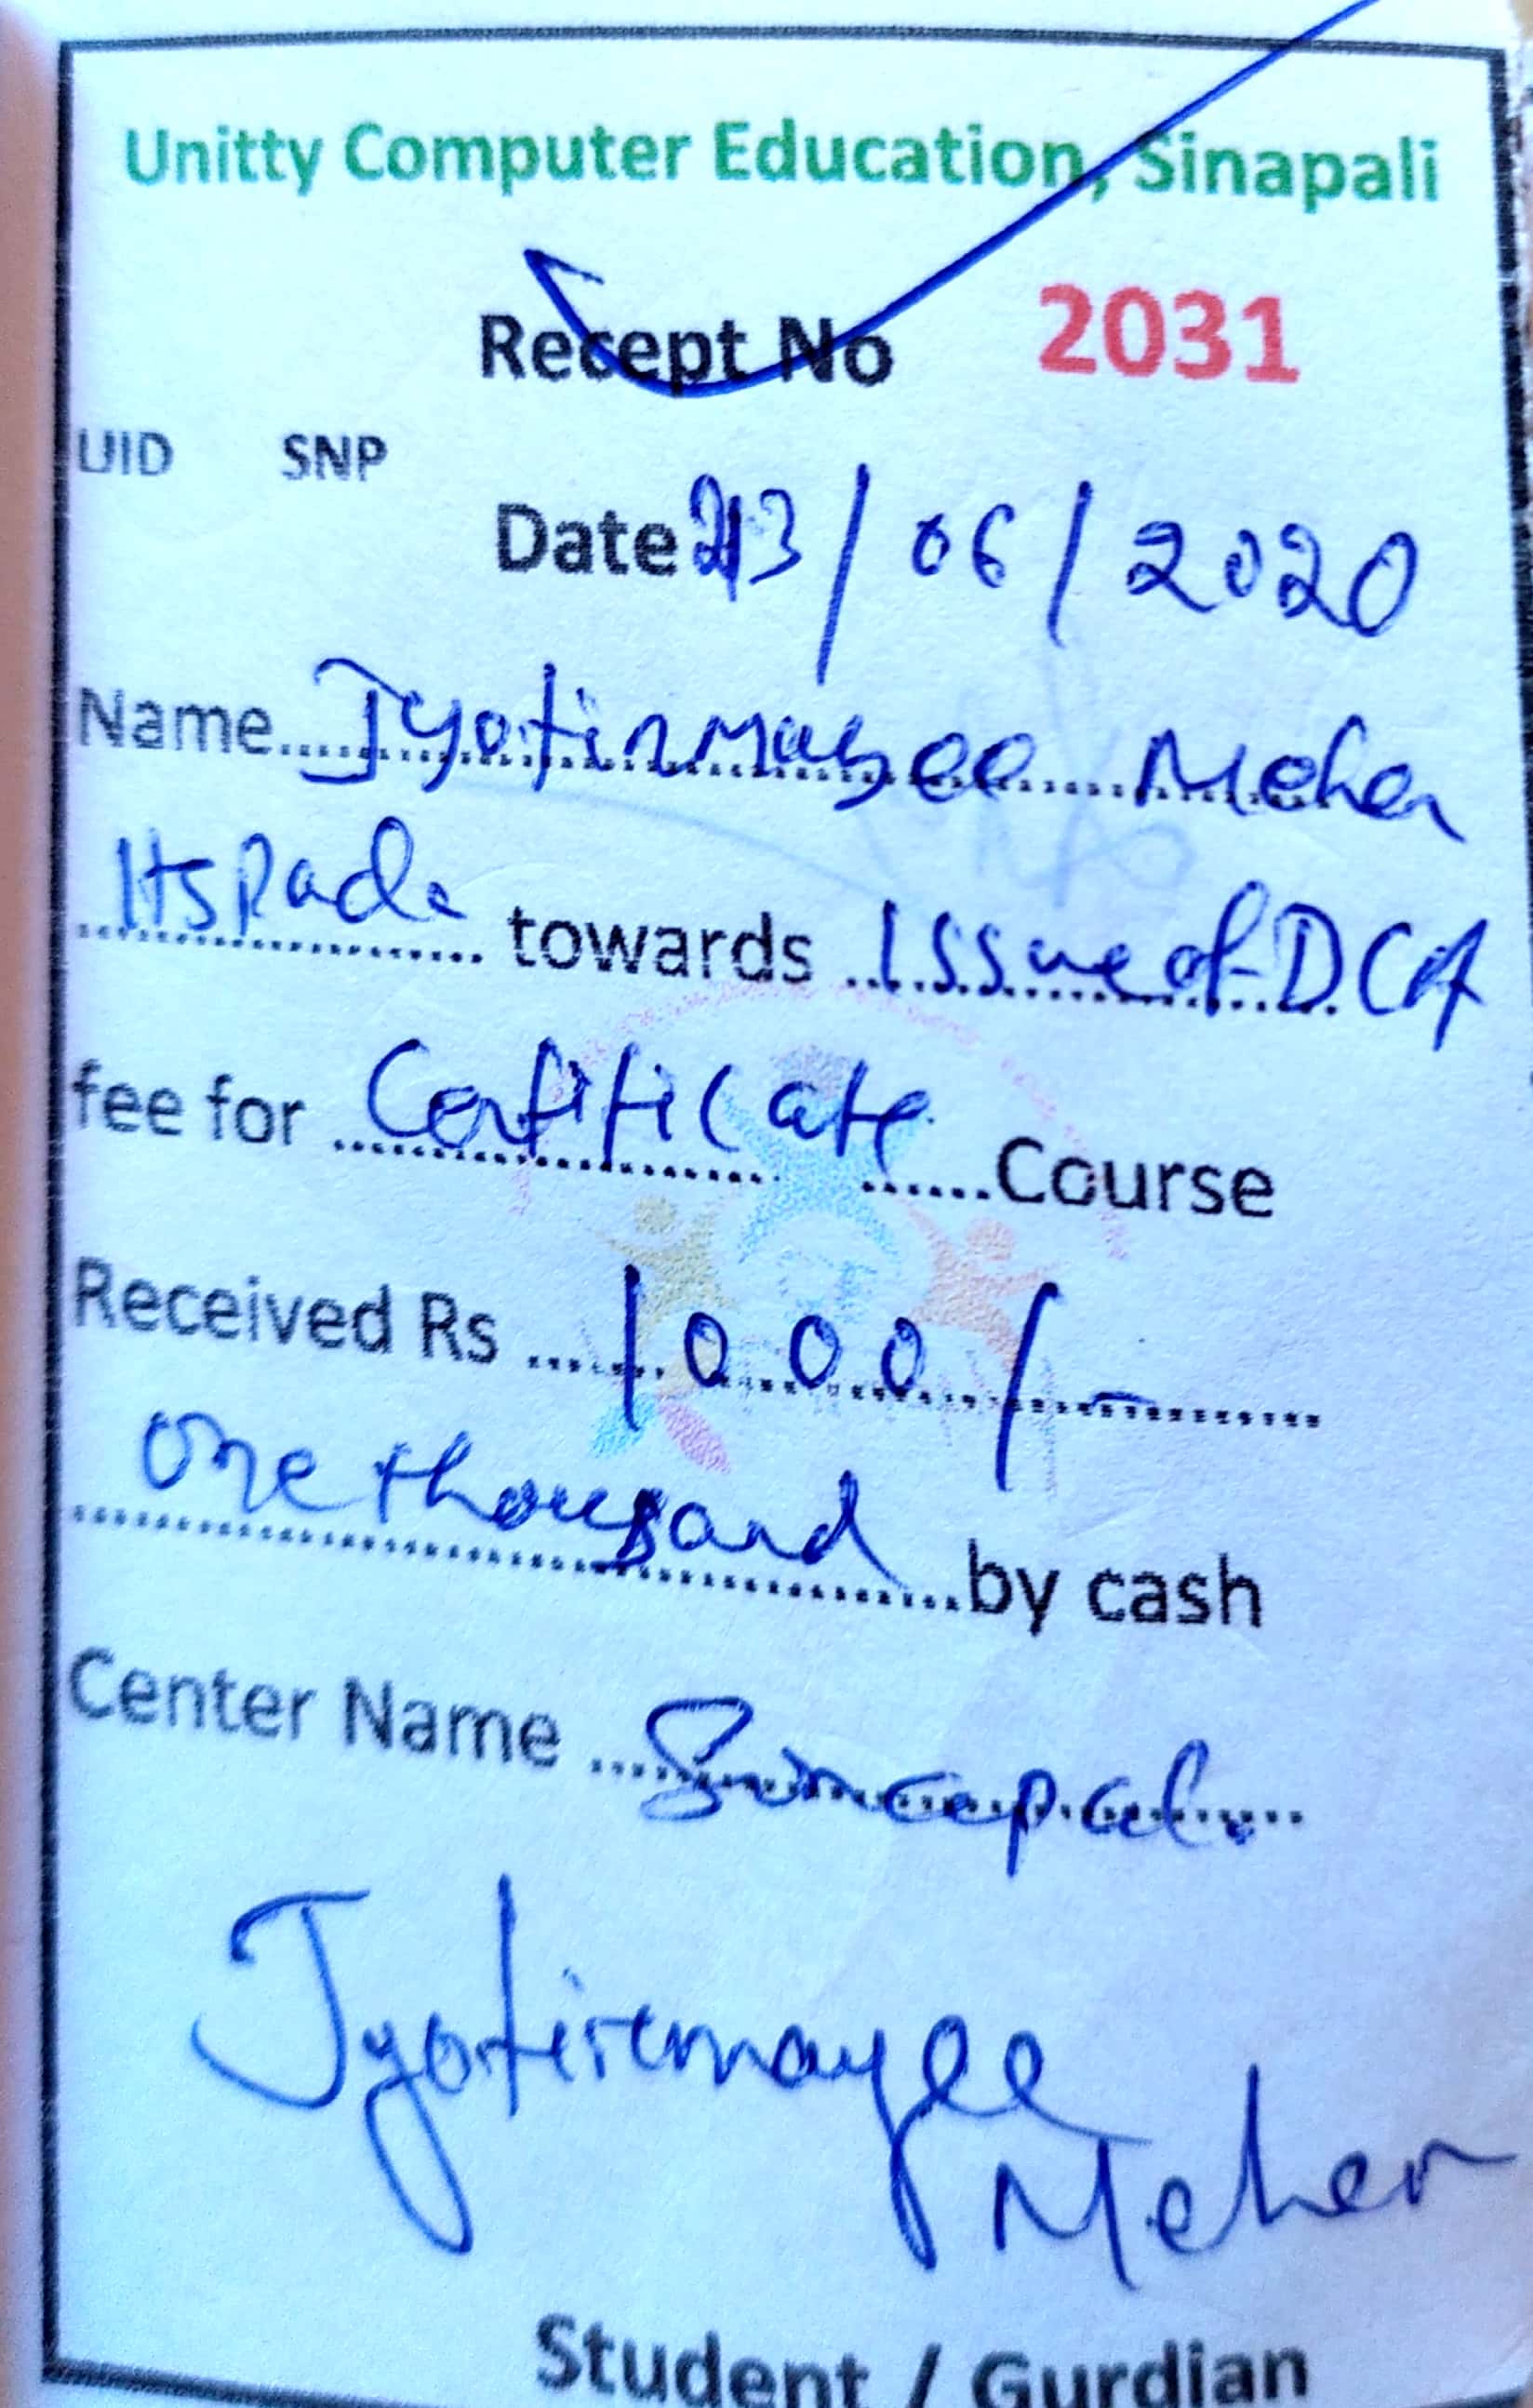 Unitty Computer Education, Sinapali
Recept No 2031
UID SNP
Date 23/06/2020
Name Jyotirmayee Meher
towards Issue of DCA
fee for Certificate Course
Received Rs 1000/-
One thousand by cash
Center Name Sinapali
Jyotiremayee
Meher
Student / Gurdian